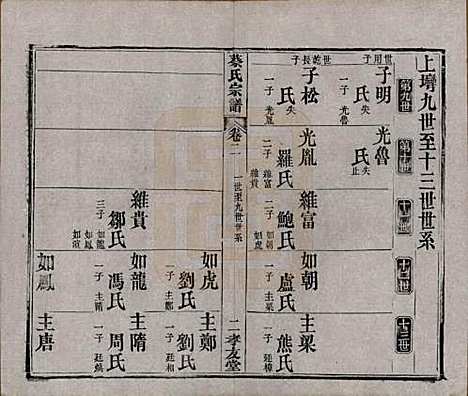 上塆九世至十三世世系
第九世
第十世
十一世
十二世
十三世
世用子
子明
氏失
一子
光魯
光魯
氏失
止
世乾長子
子松
氏失
一子
光胤
光胤
羅氏
二子
維富
維貴
維富
鮑氏
二子
如朝
如虎
如朝
盧氏
一子
主梁
主梁
熊氏
一子
廷樟
蔡氏宗譜
卷二
一世至九世世系
二
孝友堂
如虎
劉氏
一子
主鄭
主鄭
劉氏
一子
廷相
維貴
鄒氏
三子
如龍
如鳳
如龍
馮氏
一子
主隋
主隋
周氏
一子
如鳳
主唐